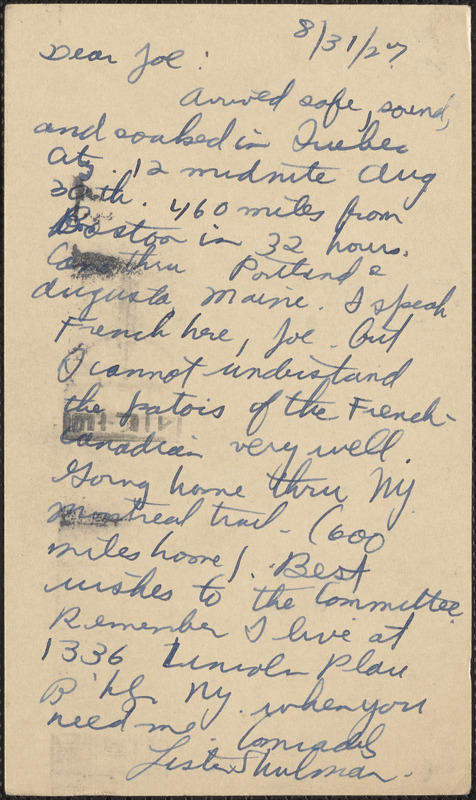 8/31/27
Dear Joe:
Arrived safe, sound,
and soaked in Quebec
City. 12 midnite Aug
30th. 460 miles from
Boston in 32 hours.
Came thru Portland &
Augusta, Maine. I speak
French here, Joe. But
I cannot understand
the patois of the French-
Canadian very well.
Going home thru NY
Montreal trail - (600
miles home). Best
wishes to the Committee.
Remember I live at
1336 Lincoln Place
B'klyn NY. when you
need me. Comradely
Lister Shulman.